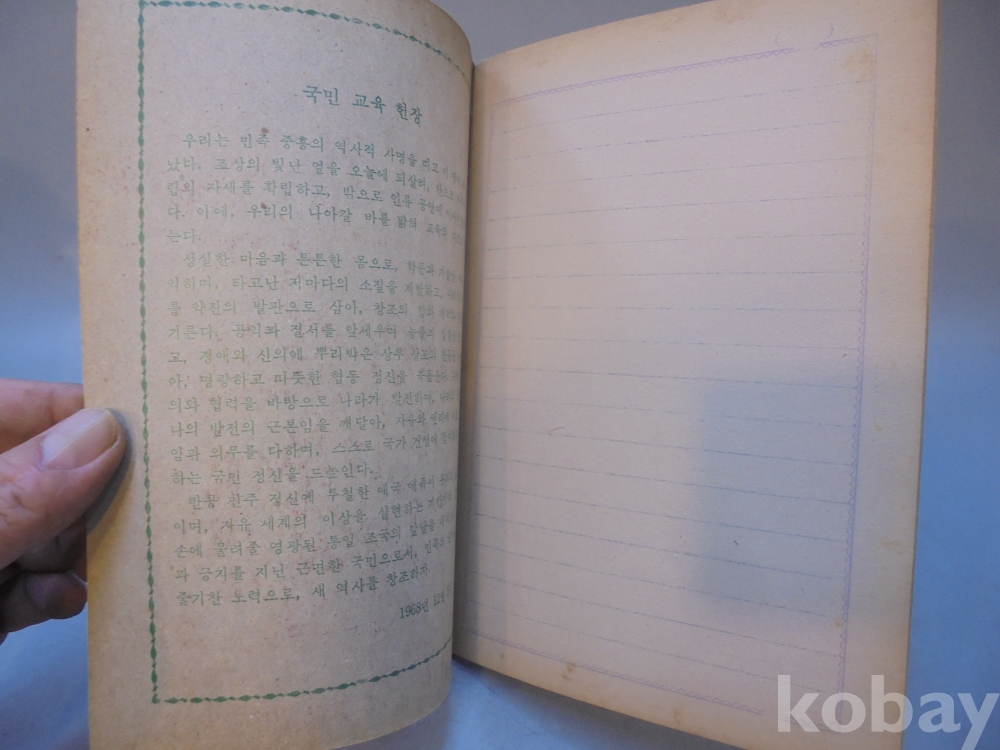 국민 교육 헌장
우리는 민족 중흥의 역사적 사명을 띠고 이
났다. 조상의 빛난 얼을 오늘에 되살려, 안으로
립의 자세를 확립하고, 밖으로 인류 공영에
다. 이에, 우리의 나아갈 바를 밝혀 교육의
는다.
성실한 마음과 튼튼한 몸으로, 학문과
익히며, 타고난 저마다의 소질을 계발하고,
를 약진의 발판으로 삼아, 창조의 힘과
거른다. 공익과 질서를 앞세우며 능률과
고, 경애와 신의에 뿌리박은 상부 상조의
아, 명랑하고 따뜻한 협동 정신을 북돋운다.
의와 협력을 바탕으로 나라가 발전하며,
나의 발전의 근본임을 깨달아, 자유와
임과 의무를 다하며, 스스로 국가 건설에
하는 국민 정신을 드높인다.
반공 민주 정신에 투철한 애국 애족이
이며, 자유 세계의 이상을 실현하는
손에 물려줄 영광된 통일 조국의 앞날을
과 긍지를 지닌 근면한 국민으로서, 민족의
줄기찬 노력으로, 새 역사를 창조하자.
1968년 12월
kobay